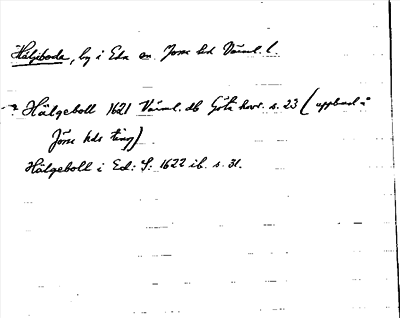 Häljeboda, by i Eda sn. Jösse hd Värml. l.
? Hälgeboll 1621 Värml. db Göta hovr. s. 23 (uppbud å
Jösse hds ting)
Hälgeboll i Ed: S: 1622 ib. s. 31.